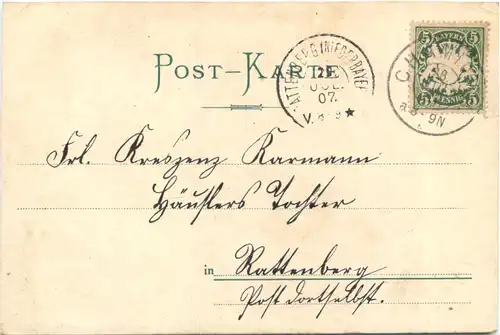 POST-KARTE
RATTENBERG (NIEDERBAYERN)
JUL.
07.
V. 8-9 ★
BAYERN
5 5
5 PFENNIG 5
8-9N
Frl. Kreszenz Karmann
Häuslers Tochter
in Rattenberg
Post dortselbst.